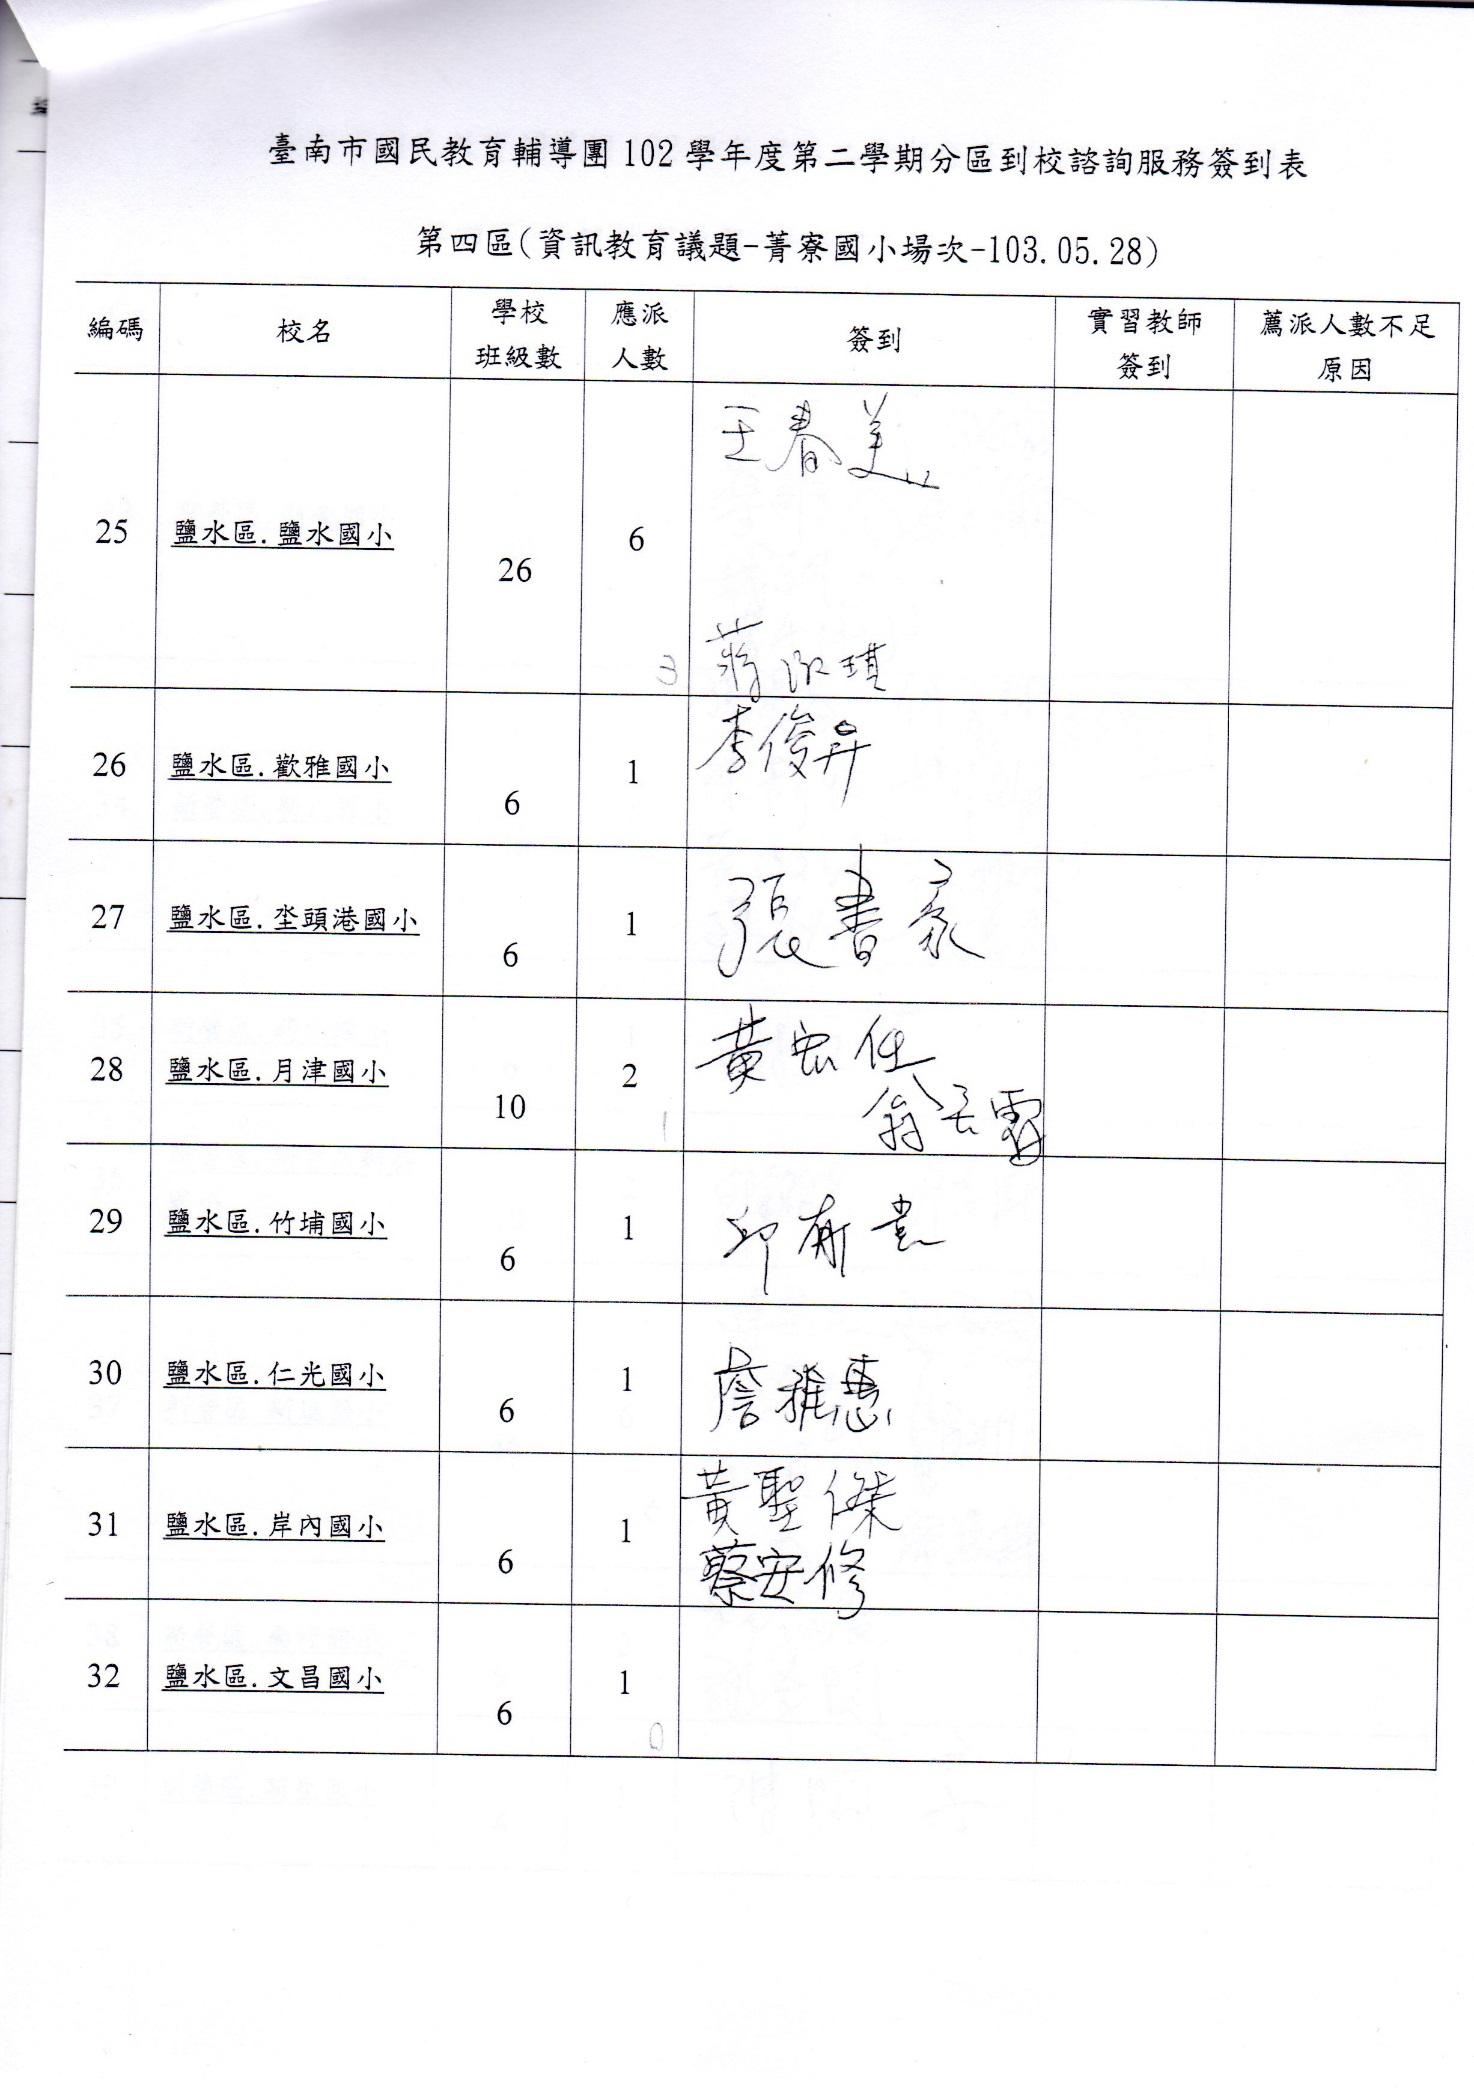 臺南市國民教育輔導團 102 學年度第二學期分區到校諮詢服務簽到表
第四區(資訊教育議題-菁寮國小場次-103.05.28)
編碼 校名 學校班級數 應派人數 簽到 實習教師簽到 薦派人數不足原因
25 鹽水區.鹽水國小 26 6 3 王春美
蔣淑琪
26 鹽水區.歡雅國小 6 1 李俊昇
27 鹽水區.坔頭港國小 6 1 張書豪
28 鹽水區.月津國小 10 2 1 黃宏任
翁
29 鹽水區.竹埔國小 6 1 邱
30 鹽水區.仁光國小 6 1 詹雅惠
31 鹽水區.岸內國小 6 1 黃聖傑
蔡安修
32 鹽水區.文昌國小 6 1 0